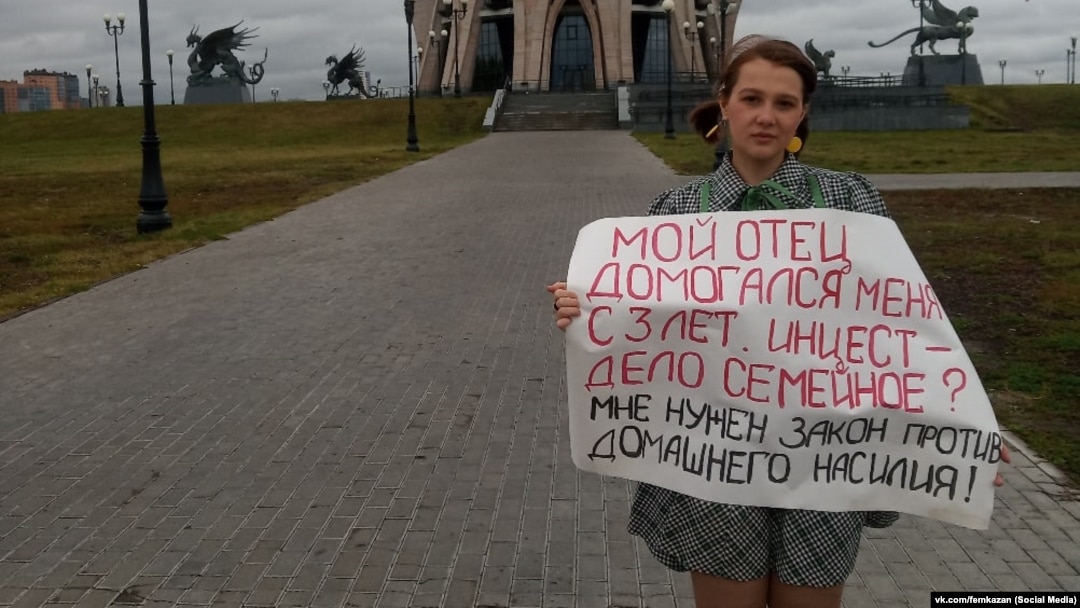 МОЙ ОТЕЦ
ДОМОГАЛСЯ МЕНЯ
С 3 ЛЕТ. ИНЦЕСТ –
ДЕЛО СЕМЕЙНОЕ?
МНЕ НУЖЕН ЗАКОН ПРОТИВ
ДОМАШНЕГО НАСИЛИЯ!
vk.com/femkazan (Social Media)